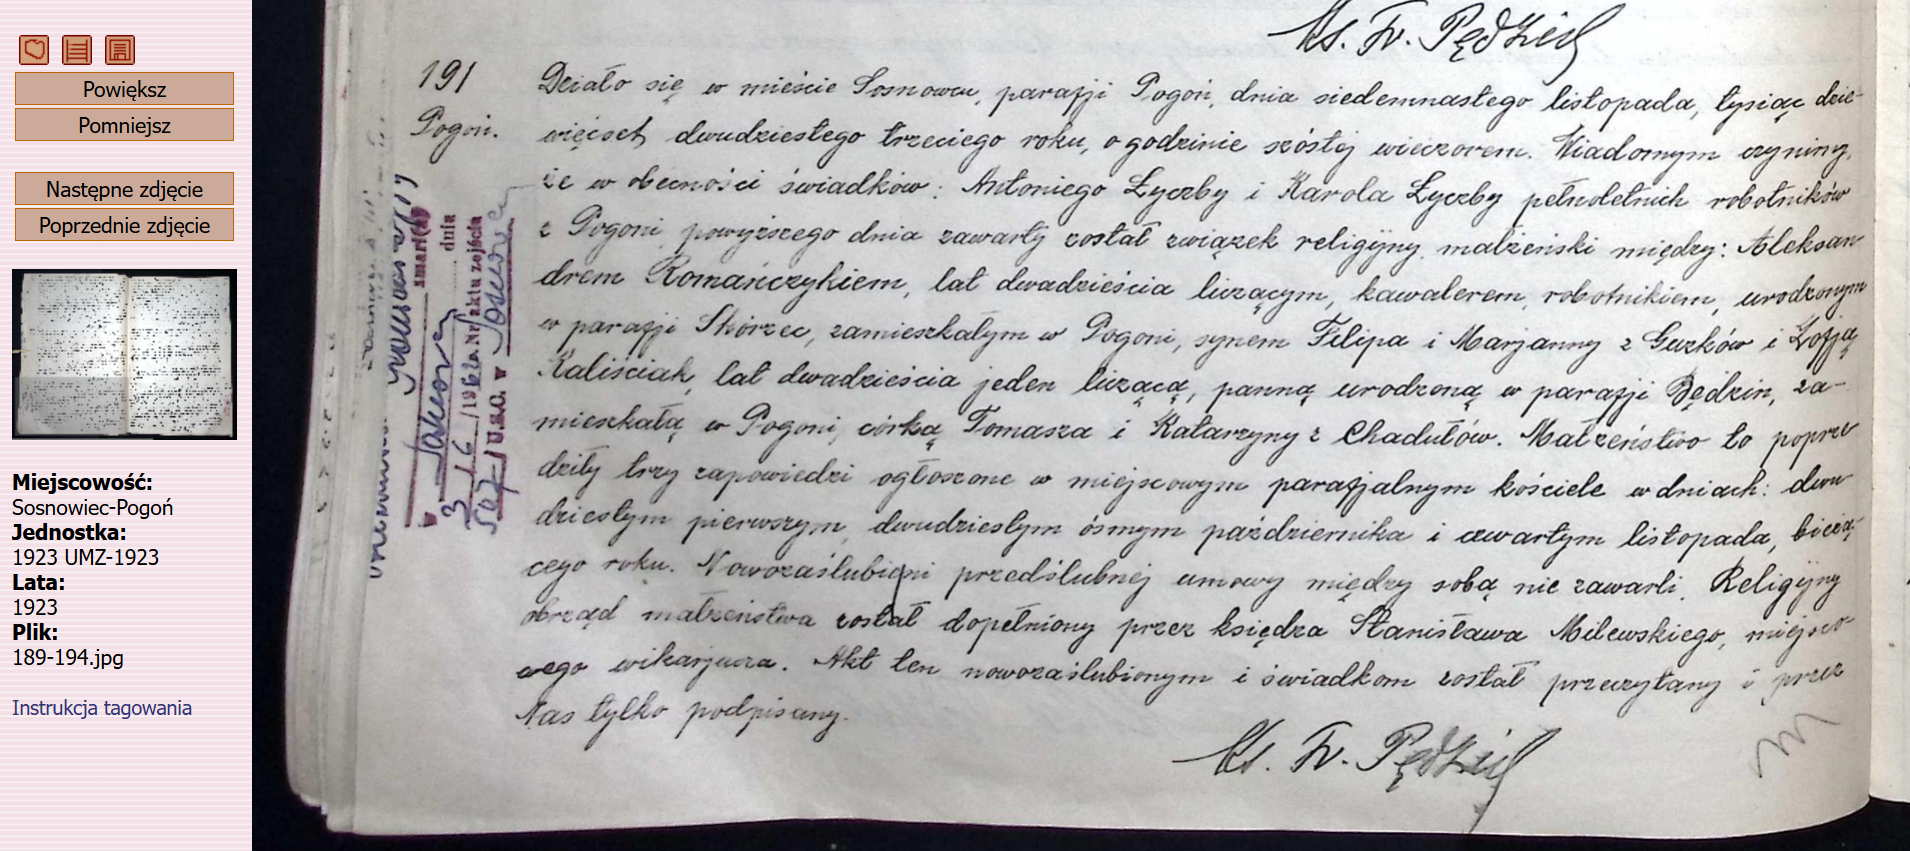 Powiększ
Pomniejsz
Następne zdjęcie
Poprzednie zdjęcie
Miejscowość:
Sosnowiec-Pogoń
Jednostka:
1923 UMZ-1923
Lata:
1923
Plik:
189-194.jpg
Instrukcja tagowania
Ks. Fr. Pędzich
191
Pogoń.
Działo się w mieście Sosnowcu, parafji Pogoń, dnia siedemnastego listopada, tysiąc dzie-
więćset dwudziestego trzeciego roku, o godzinie szóstej wieczorem. Wiadomym czynimy,
że w obecności świadków: Antoniego Łyczby i Karola Łyczby pełnoletnich robotników
z Pogoni, powyższego dnia zawarty został związek religijny małżeński między: Aleksan
drem Romańczykiem, lat dwadzieścia liczącym, kawalerem, robotnikiem, urodzonym
w parafji Skórzec, zamieszkałym w Pogoni, synem Filipa i Marjanny z Guzków i Zofją
Kaliściak, lat dwadzieścia jeden liczącą, panną urodzoną w parafji Będzin, za-
mieszkałą w Pogoni, córką Tomasza i Katarzyny z Chadułów. Małżeństwo to poprze
dziły trzy zapowiedzi ogłoszone w miejscowym parafjalnym kościele w dniach: dwu
dziestym pierwszym, dwudziestym ósmym października i czwartym listopada, bieżą-
cego roku. Nowozaślubieni przedślubnej umowy między sobą nie zawarli. Religijny
obrząd małżeństwa został dopełniony przez księdza Stanisława Milewskiego, miejsco-
wego wikarjusza. Akt ten nowozaślubionym i świadkom został przeczytany i przez
Nas tylko podpisany.
Ks. Fr. Pędzich
zmarł(a)
w dnia
3/6/1962 Nr aktu zejścia
507 U.S.C. w